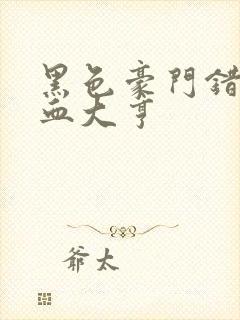 黑色豪門錯
血大亨
爺太